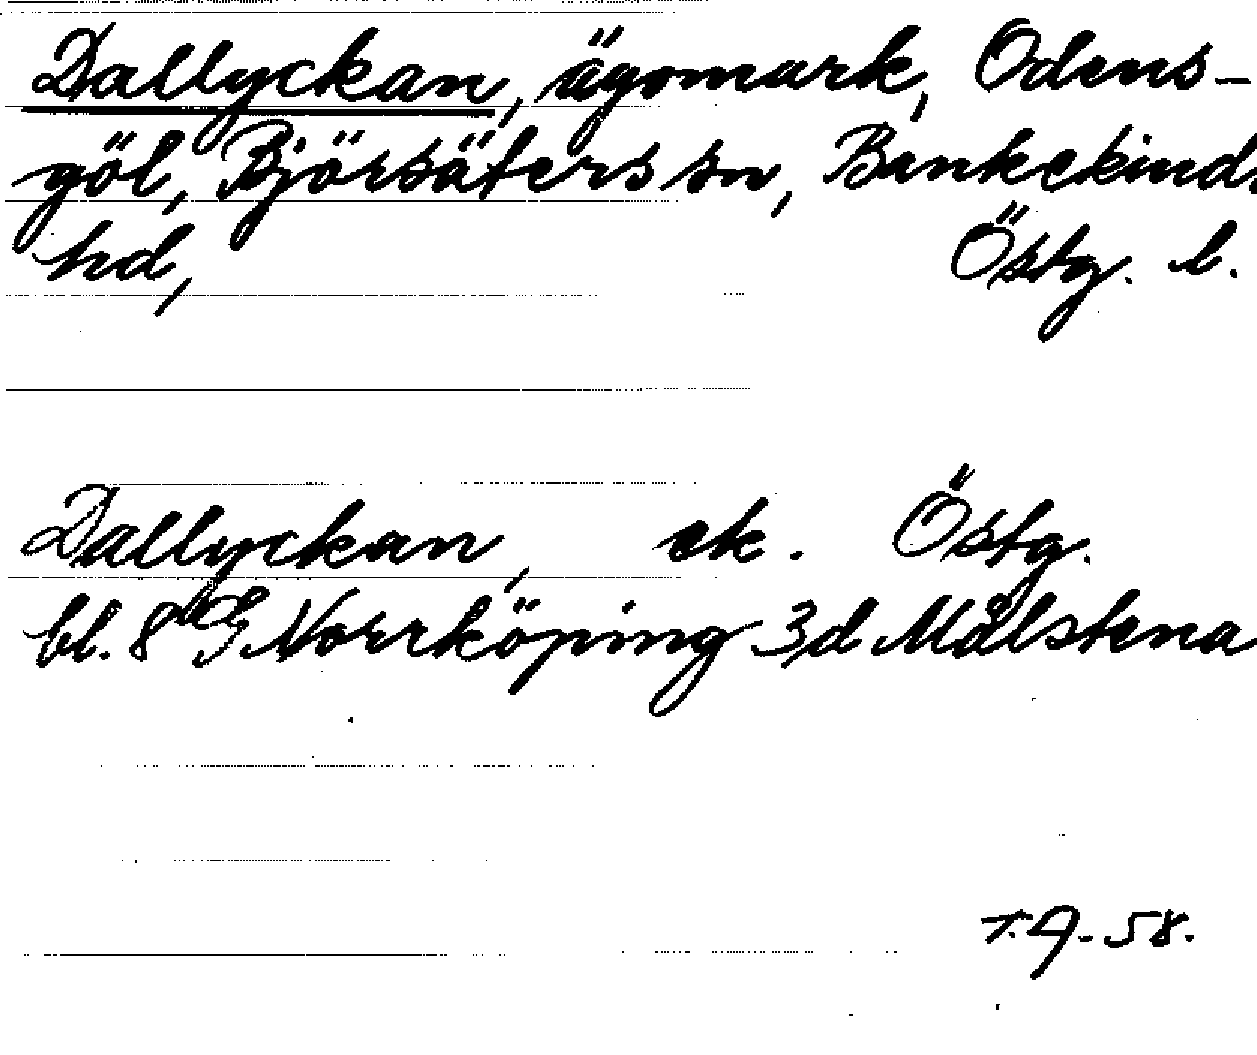 Dallyckan, ägomark, Odens-
göl, Björsäters sn, Bankekinds
hd, Östg. l.
Dallyckan, ek. Östg.
bl. 8 G Norrköping 3d Målstena
T.A-58.